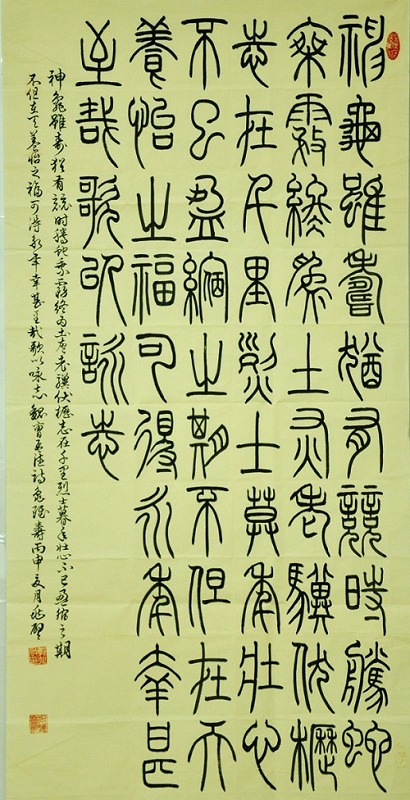 神龜雖壽猶有競時騰蛇
乘霧終為土灰老驥伏櫪
志在千里烈士暮年壯心
不已盈縮之期不但在天
養怡之福可得永年幸甚
至哉歌以詠志
神龜雖壽猶有競時騰蛇乘霧終為土灰老驥伏櫪志在千里烈士暮年壯心不已盈縮之期
不但在天養怡之福可得永年幸甚至哉歌以詠志 魏曹孟德詩龜雖壽丙申夏月